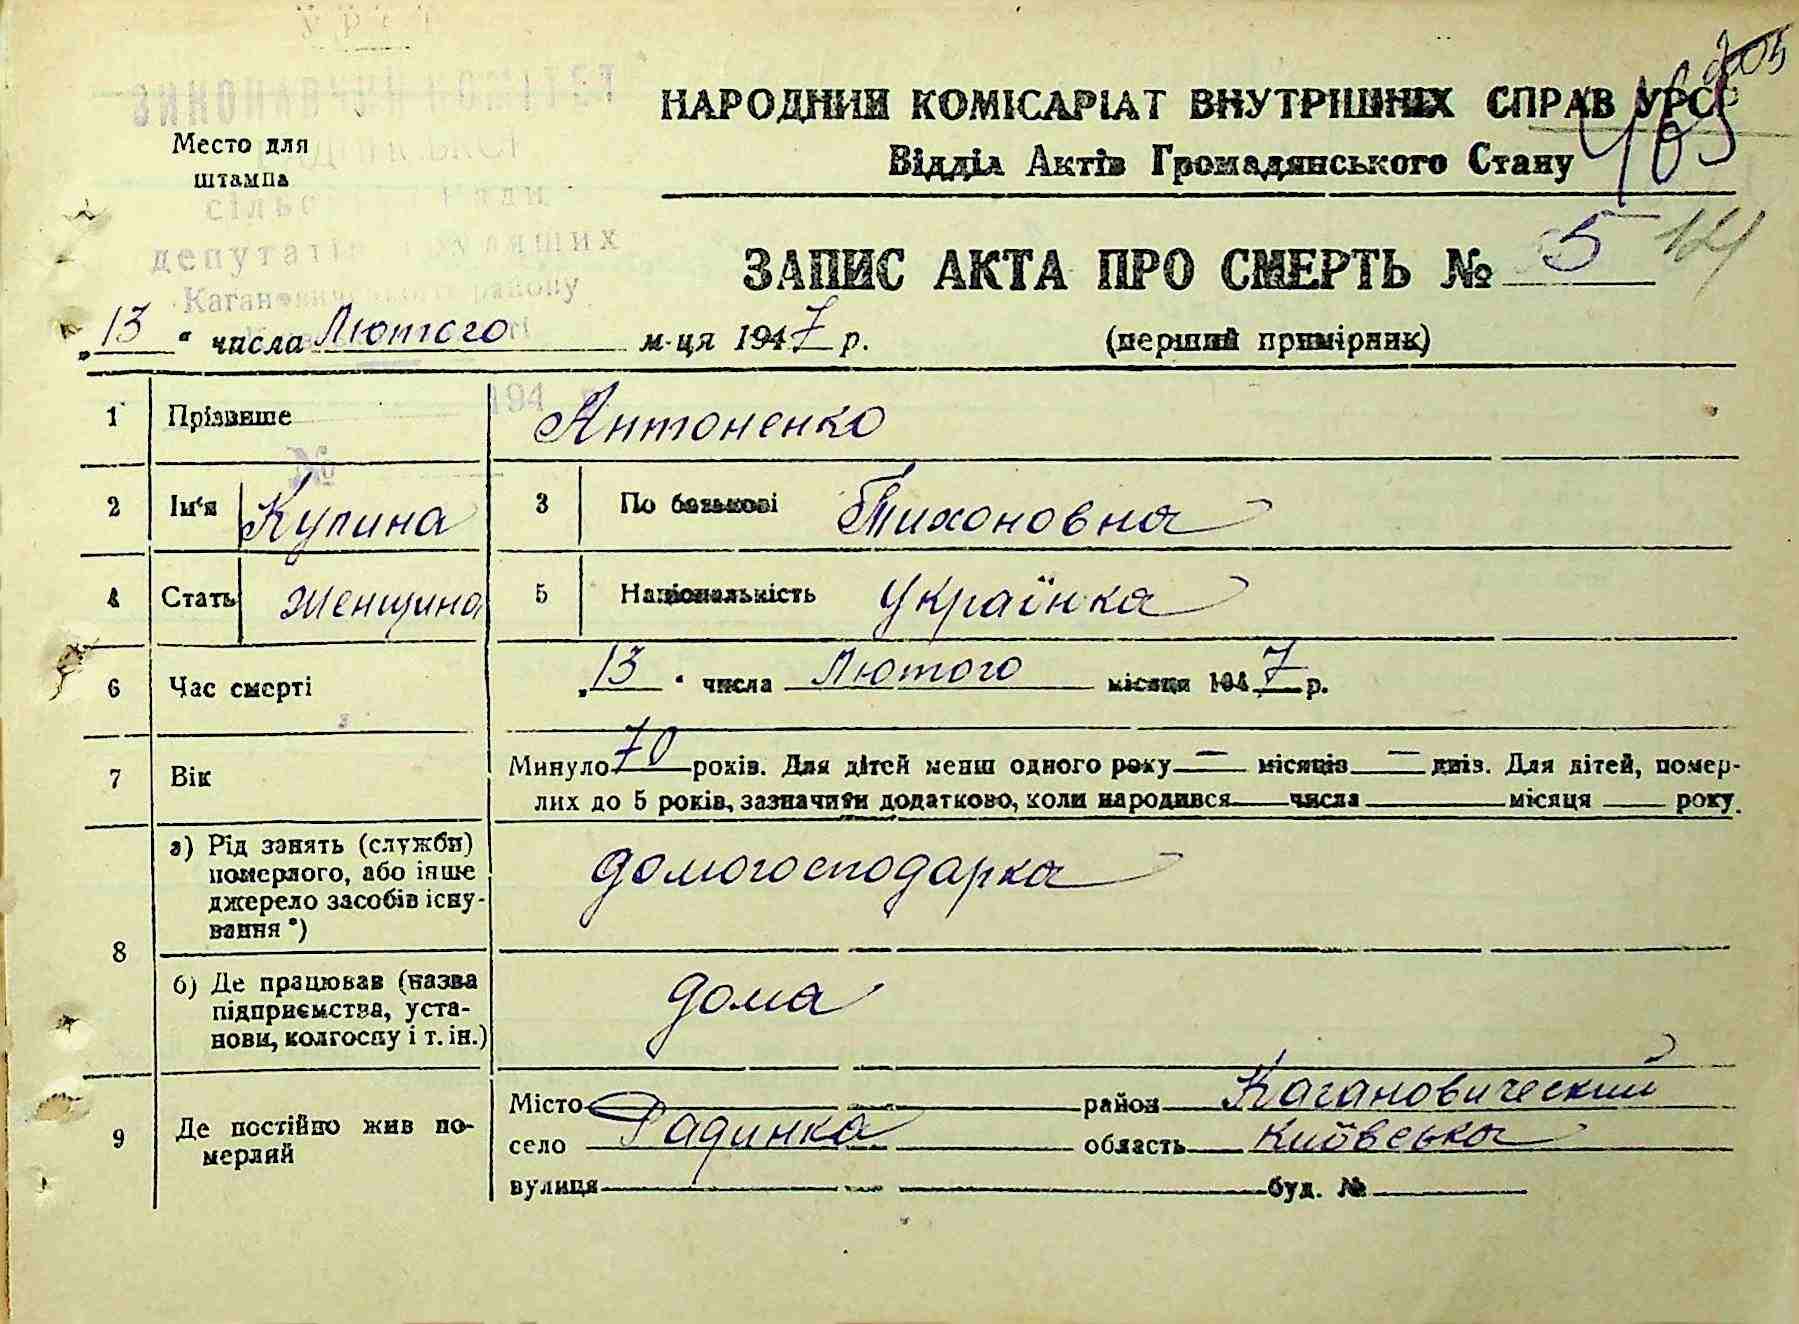 У Р С Р
ВИКОНАВЧИЙ КОМІТЕТ
НАРОДНИЙ КОМІСАРІАТ ВНУТРІШНІХ СПРАВ УРСР
Место для
штампа
Відділ Актів Громадянського Стану
465
сільської ради
депутатів трудящих
Кагановичського району
ЗАПИС АКТА ПРО СМЕРТЬ № 5
„13“ числа Лютого м-ця 1947 р. (перший примірник)
194
1 Прізвище Антоненко
№
2 Ім'я Кулина 3 По батькові Тихоновна
4 Стать Женщина 5 Національність Українка
6 Час смерті „13“ числа Лютого місяця 1947 р.
7 Вік Минуло 70 років. Для дітей менш одного року — місяців — днів. Для дітей, помер-
лих до 5 років, зазначити додатково, коли народився числа місяця року.
8 а) Рід занять (служби)
померлого, або інше
джерело засобів існу-
вання *)
домогосподарка
б) Де працював (назва
підприємства, уста-
нови, колгоспу і т. ін.)
дома
9 Де постійно жив по-
мерлий
Місто район Кагановический
село Радинка область Київська
вулиця буд. №